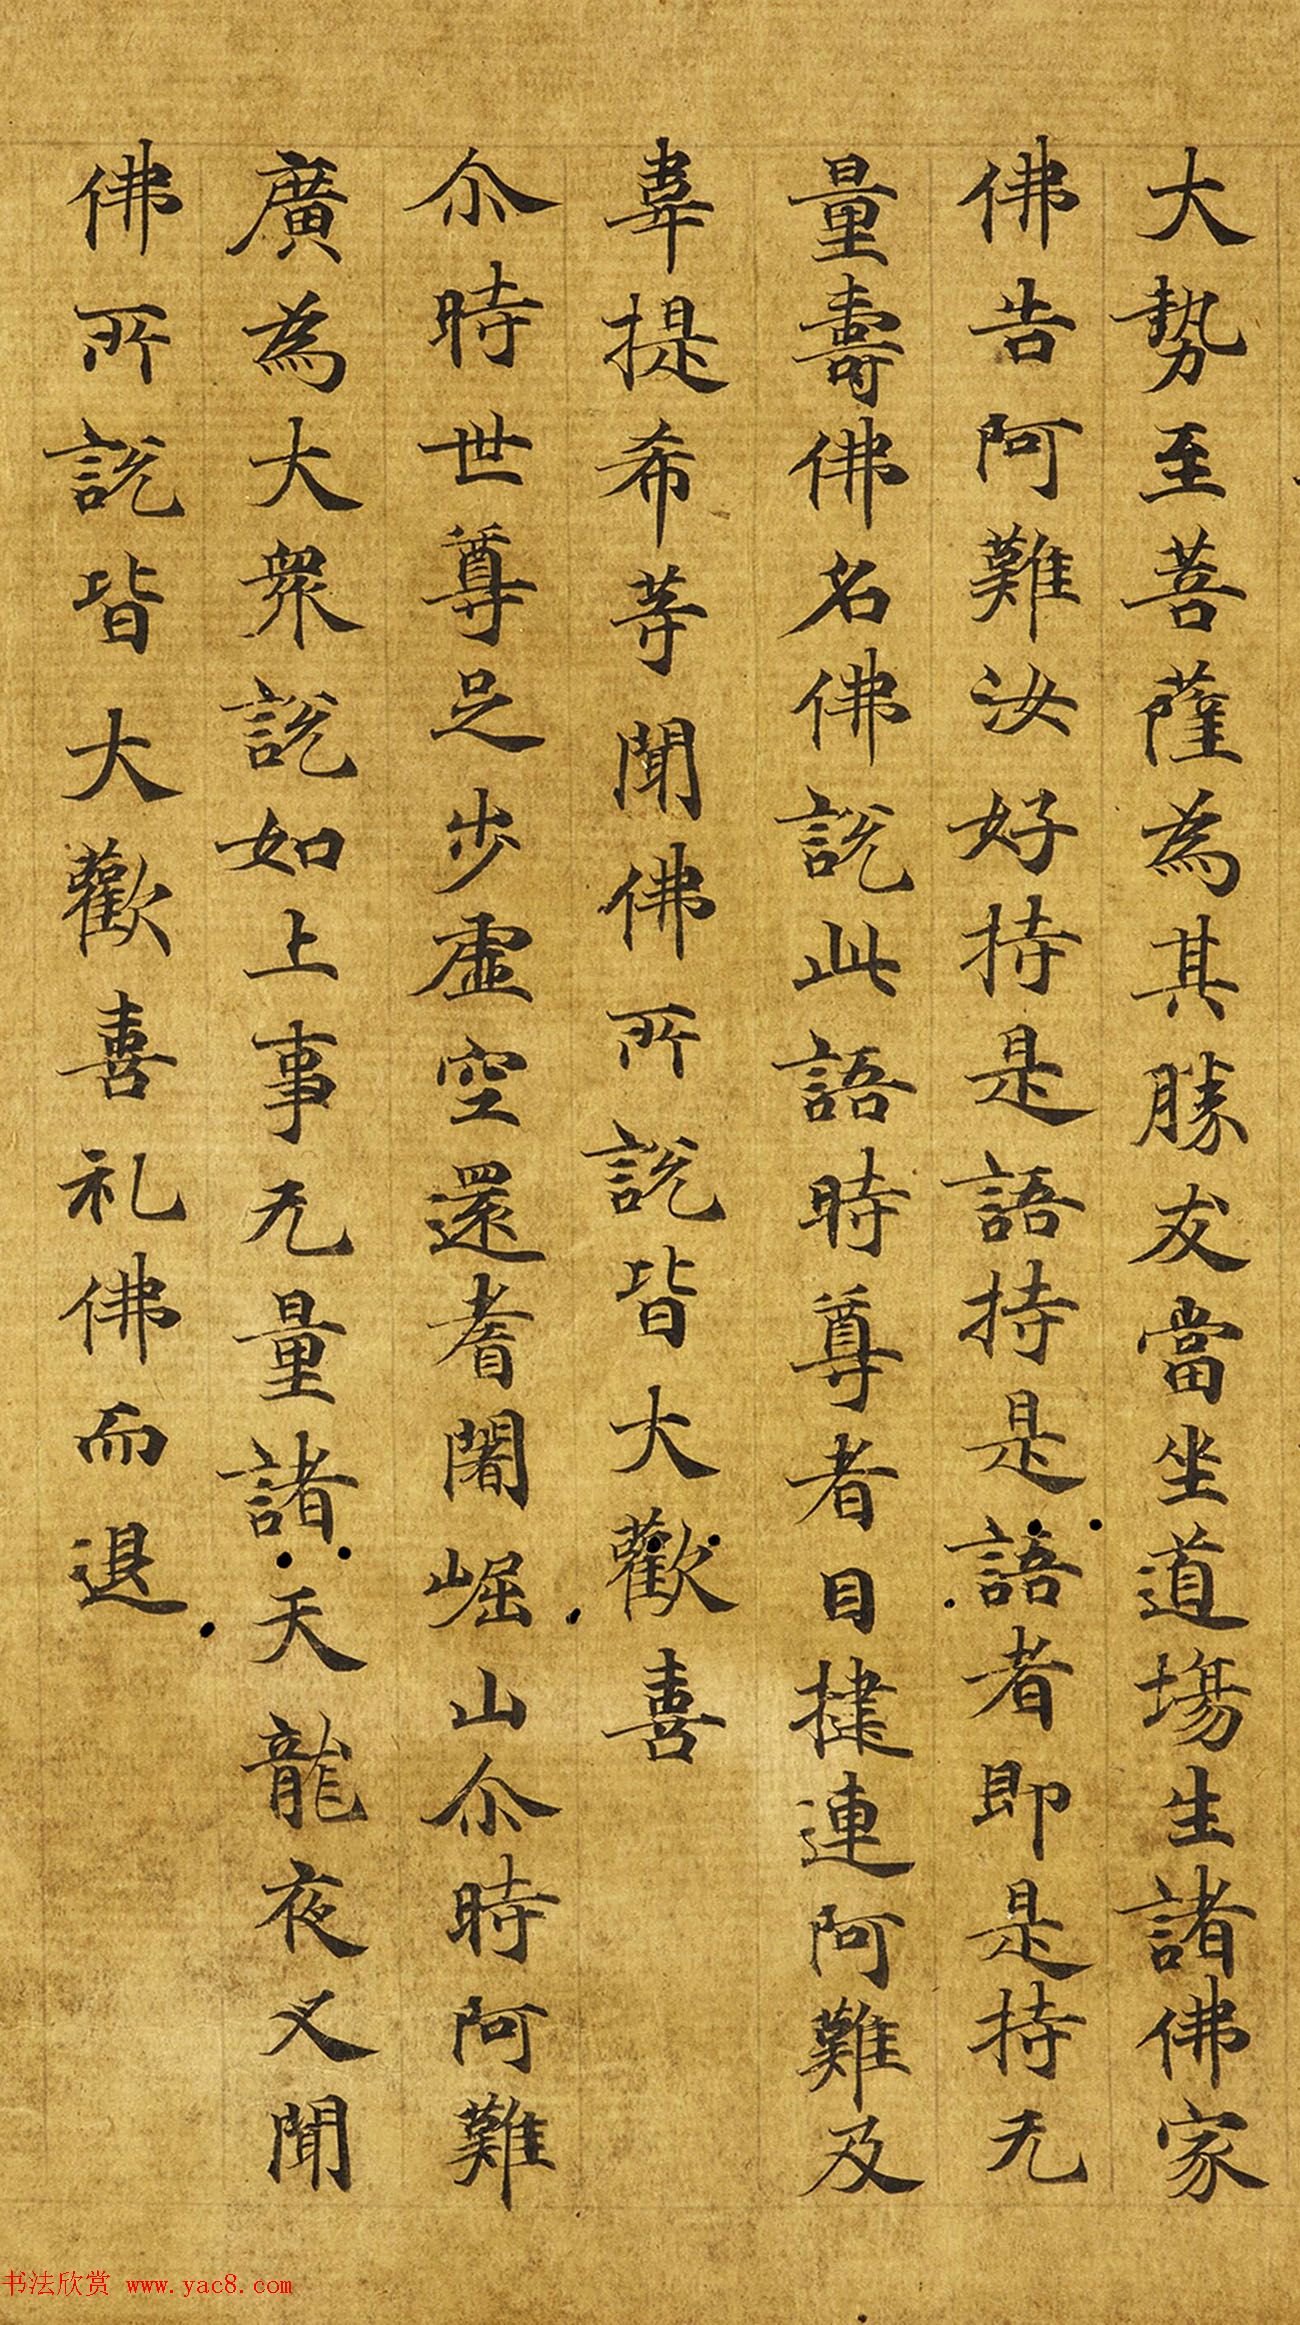 大勢至菩薩為其勝友當坐道塲生諸佛家
佛告阿難汝好持是語持是語者即是持无
量壽佛名佛説此語時尊者目揵連阿難及
韋提希等聞佛所説皆大歡喜
尒時世尊足步虛空還耆闍崛山尒時阿難
廣為大衆説如上事无量諸天龍夜叉聞
佛所説皆大歡喜礼佛而退
书法欣赏 www.yac8.com